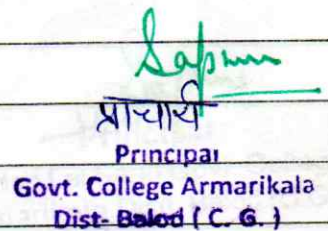 प्राचार्य
Principal
Govt. College Armarikala
Dist- Balod ( C. G. )